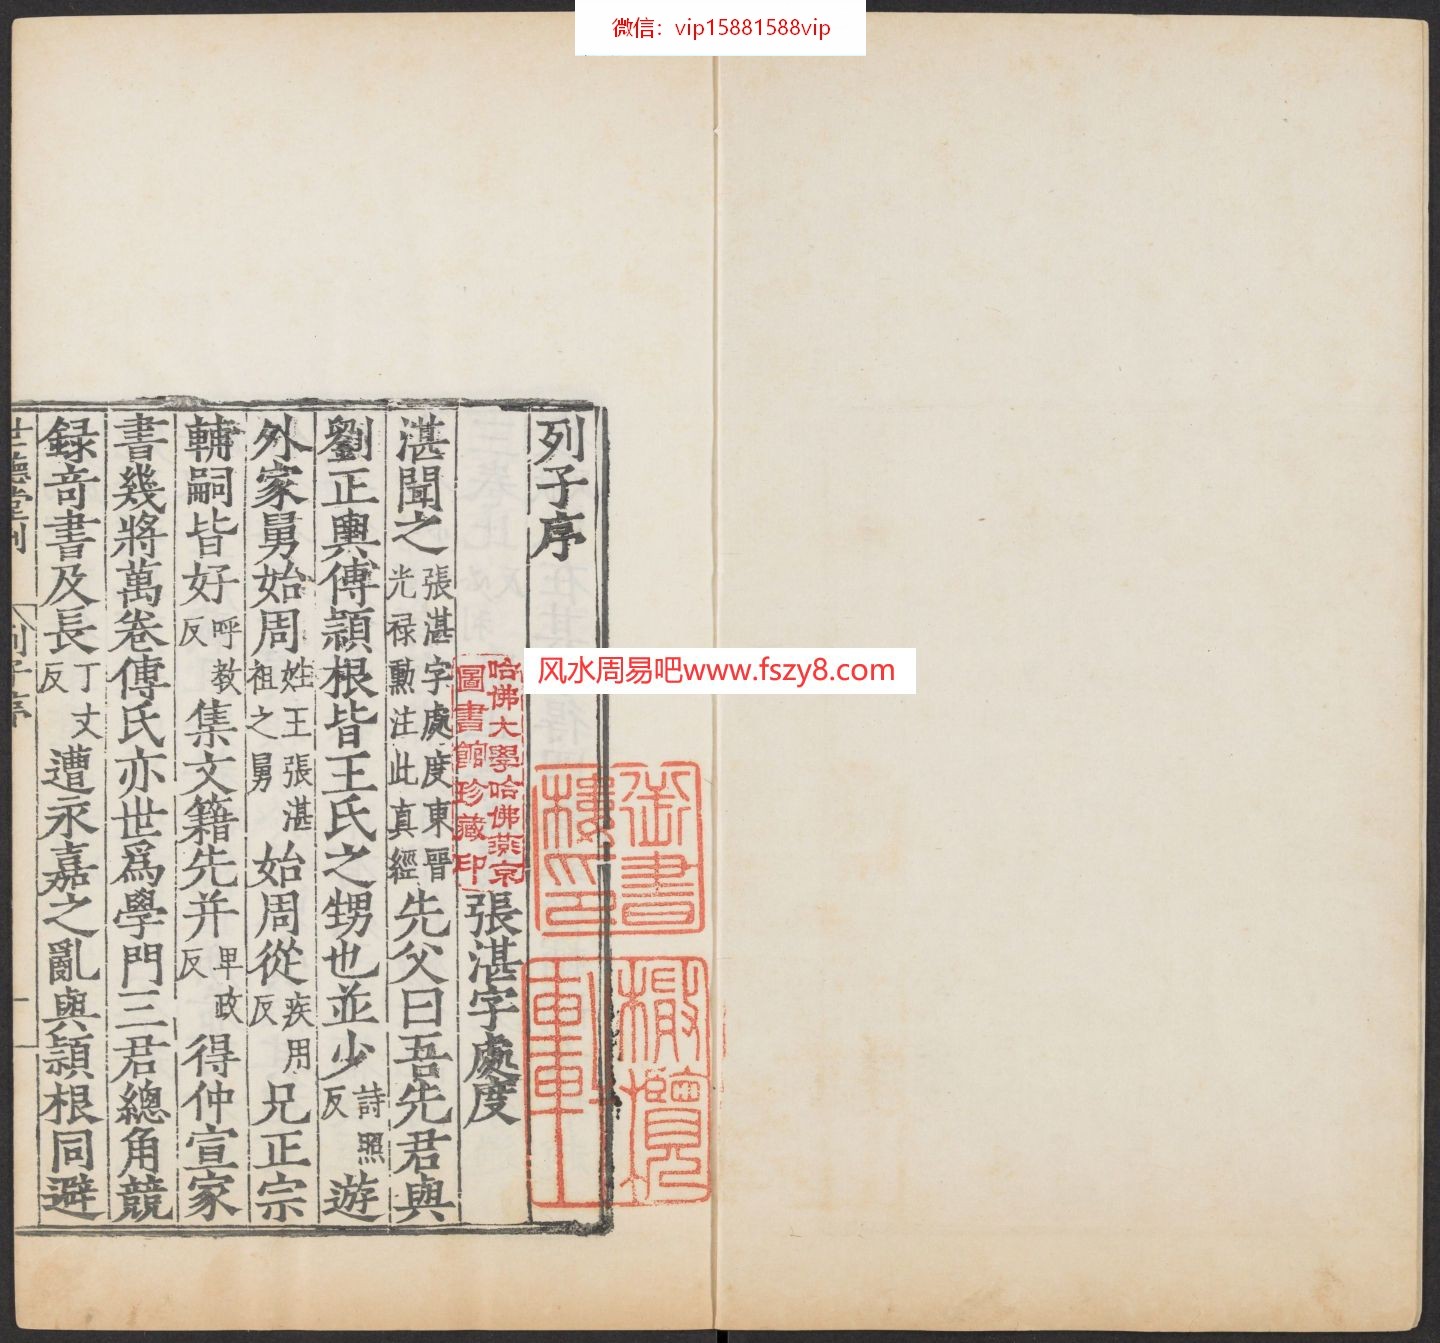 微信：vip15881588vip
列子序
張湛字處度
湛聞之張湛字處度東晉光禄勳注此真經先父曰吾先君與
劉正輿傅穎根皆王氏之甥也並少詩照反遊
外家舅始周姓王張湛祖之舅始周從疾用反兄正宗
輔嗣皆好呼教反集文籍先并卑政反得仲宣家
書幾將萬卷傅氏亦世爲學門三君總角競
録奇書及長丁丈反遭永嘉之亂與穎根同避
世德堂刊
列子序
一
哈佛大學哈佛燕京
圖書館珍藏印
御書
樓印
风水周易吧www.fszy8.com